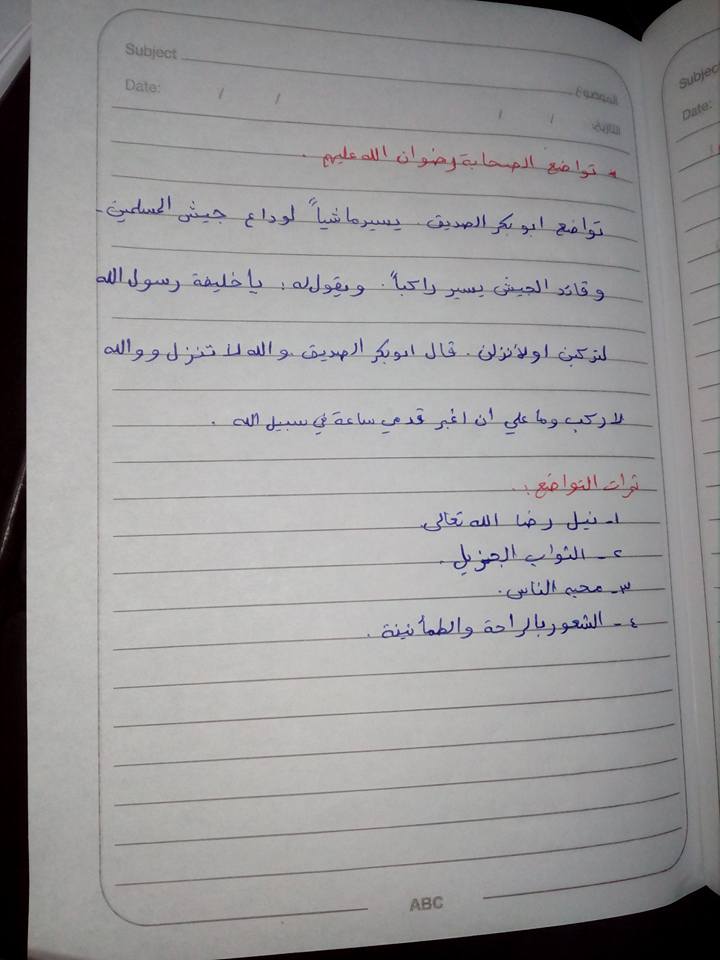 Subject الموضوع
Date: / / / / التاريخ:
* تواضع الصحابة رضوان الله عليهم .
تواضع ابو بكر الصديق يسير ماشياً لوداع جيش المسلمين
وقائد الجيش يسير راكباً . ويقول له : يا خليفة رسول الله
لتركبن او لأنزلن . قال ابو بكر الصديق والله لا تنزل ووالله
لا ركب وما علي ان اغبر قدمي ساعة في سبيل الله .
ثمرات التواضع :
١- نيل رضا الله تعالى
٢- الثواب الجزيل .
٣- محبه الناس .
٤- الشعور بالراحة والطمأنينة .
ABC
Subject
Date: